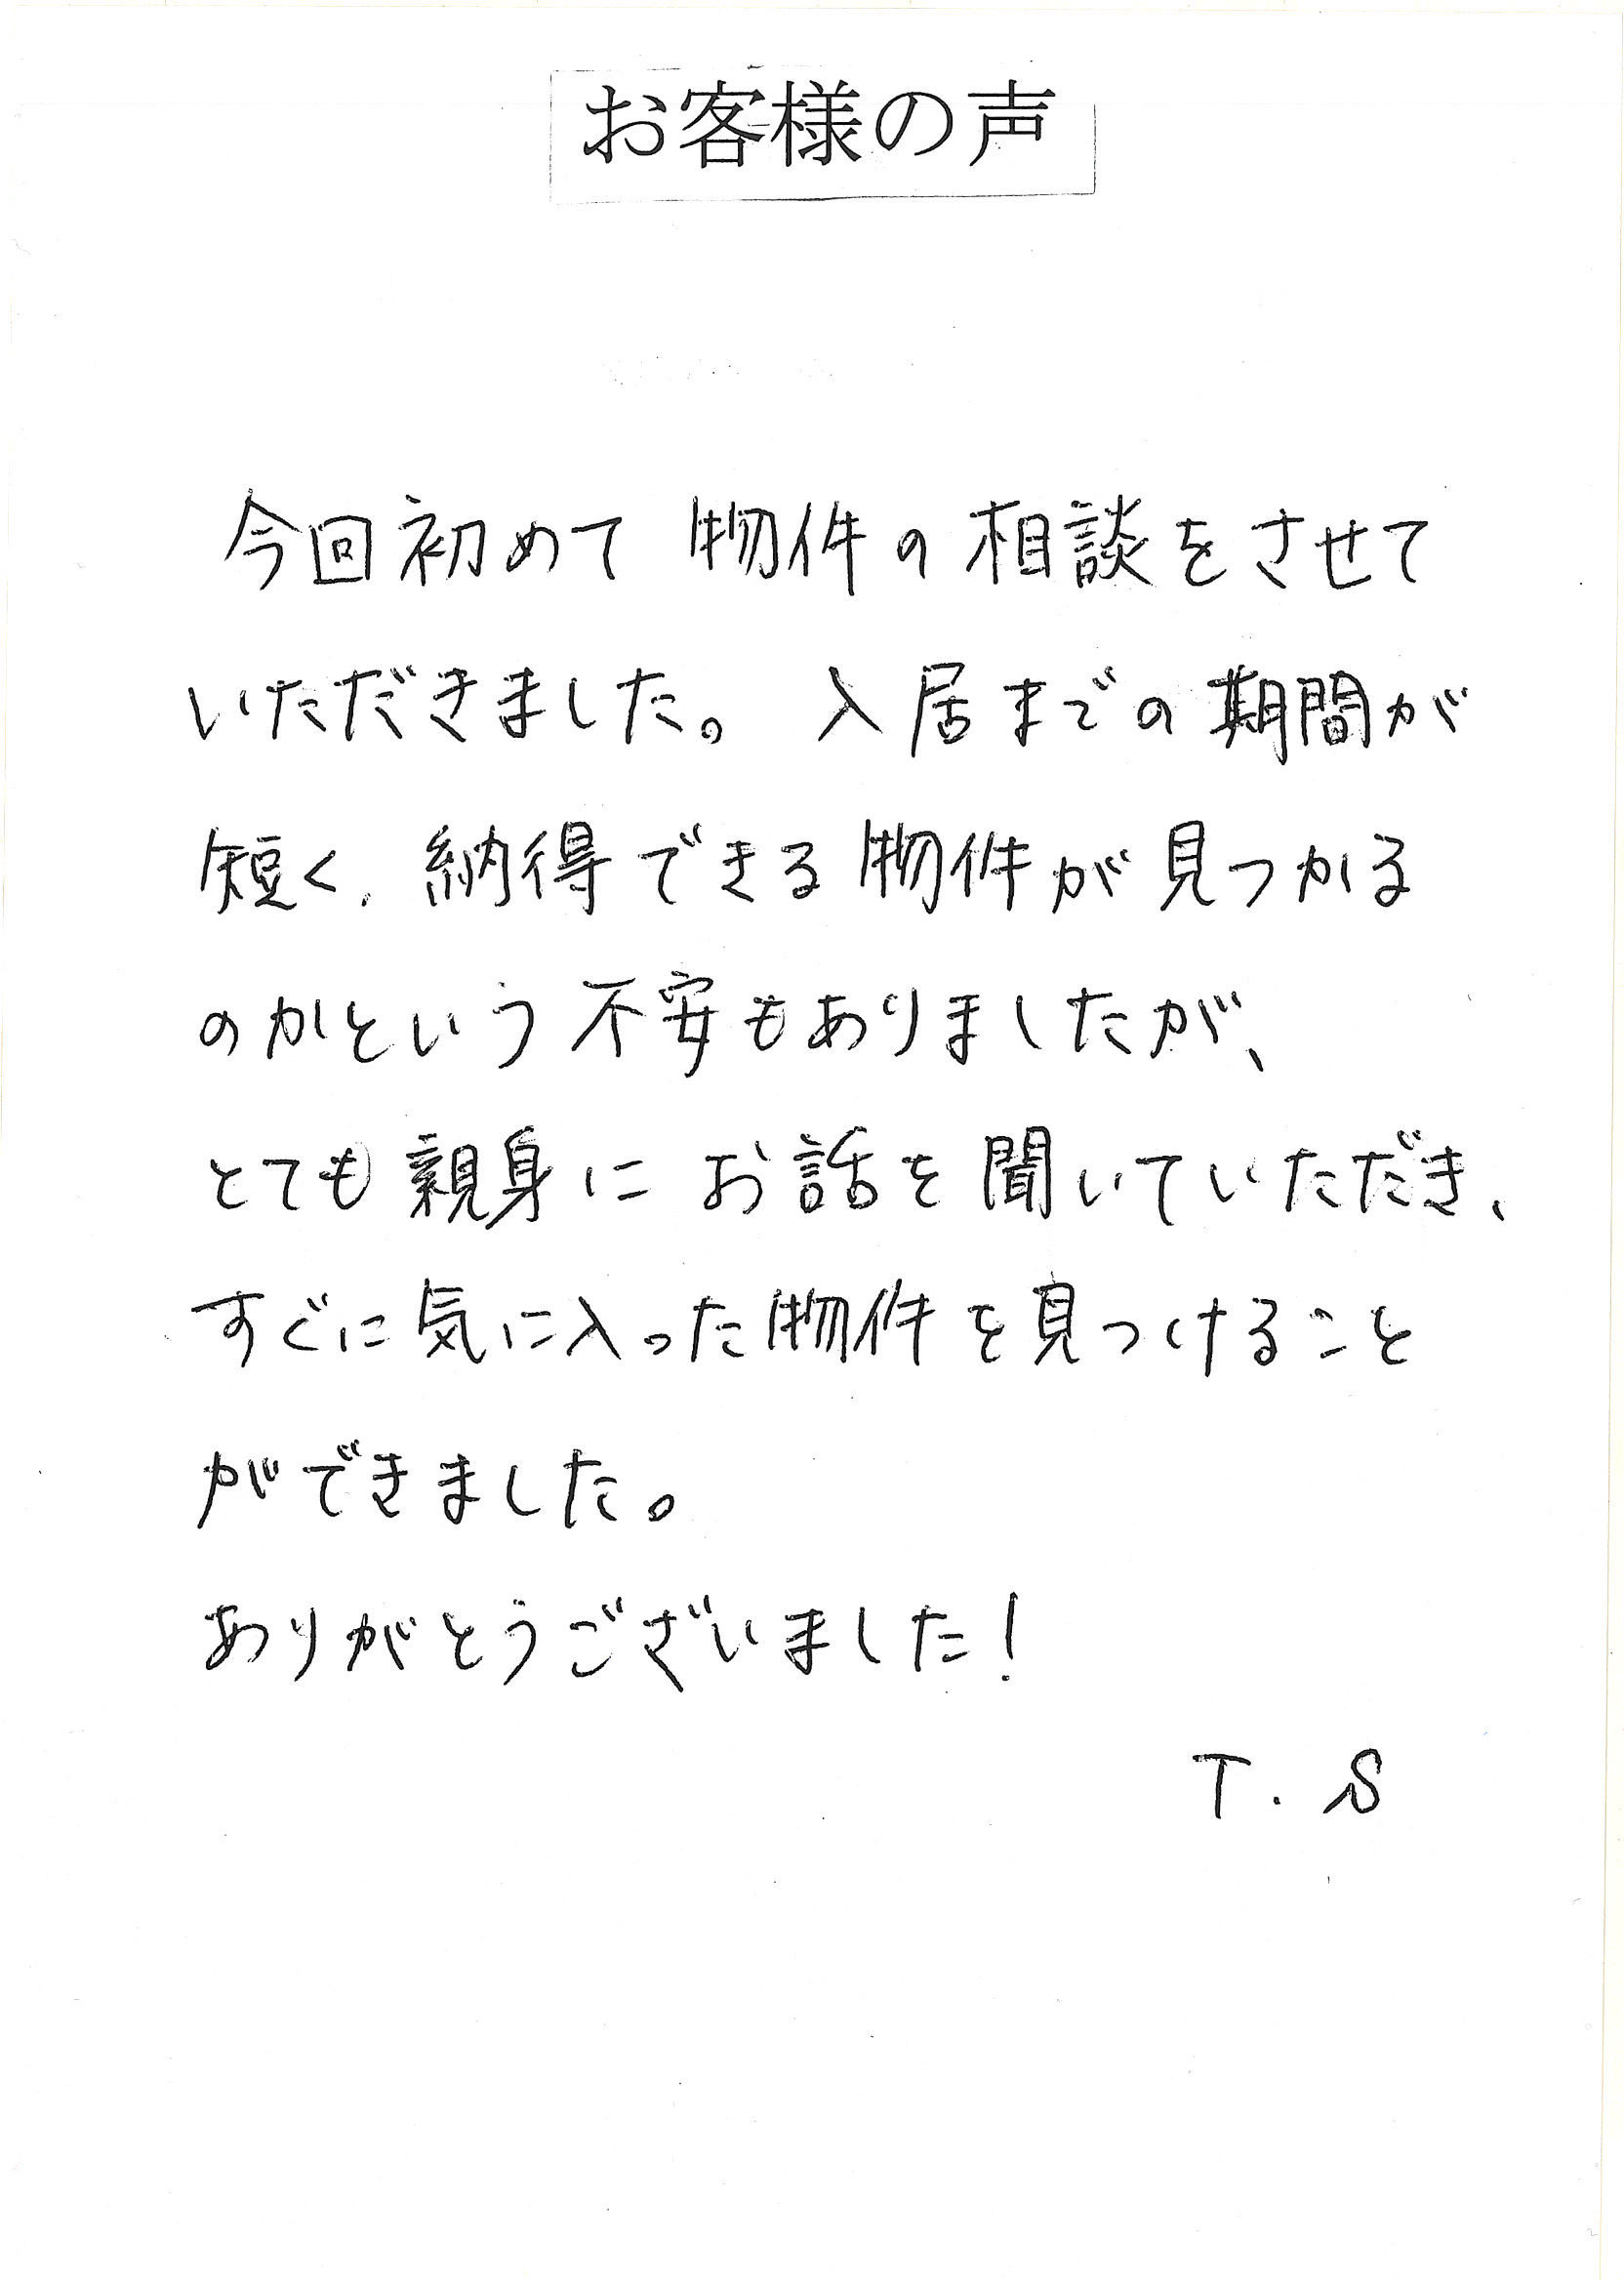 お客様の声
今回初めて物件の相談をさせて
いただきました。入居までの期間が
短く、納得できる物件が見つかる
のかという不安もありましたが、
とても親身にお話を聞いていただき、
すぐに気に入った物件を見つけること
ができました。
ありがとうございました!
T.S